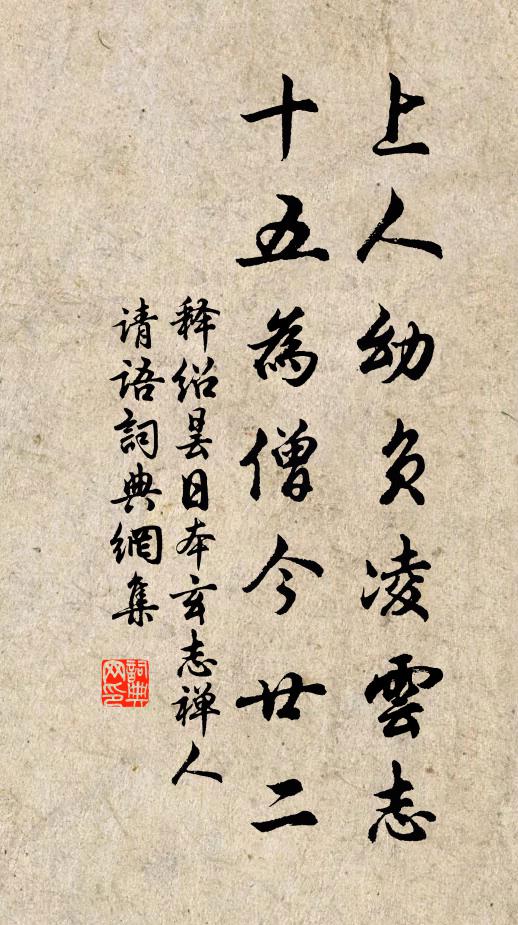 上人幼负凌雲志
十五為僧今廿二
释绍昙日本玄志禅人
请语詞典網集
詞典网印